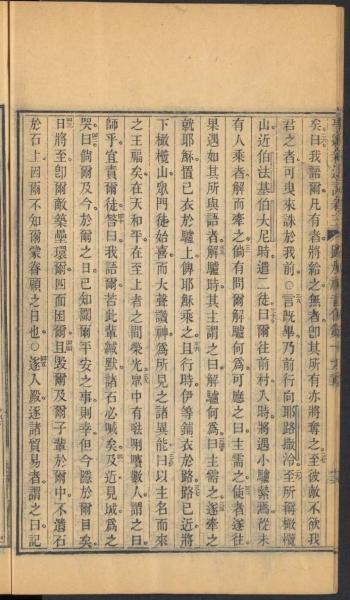 矣曰我語爾凡有者將給之無者即其所有亦將奪之至彼敵不欲我
君之者可曳來誅於我前○言旣畢乃前行向耶路撒冷至所稱橄欖
山近伯法基伯大尼時遣二徒曰爾往前村入時將遇小驢縶焉從未
有人乘者解而牽之倘有問爾解驢何爲可應之曰主需之使者遂往
果遇如其所與語者解驢時其主謂之曰解驢何爲曰主需之遂牽之
就耶穌置已衣於驢上俾耶穌乘之且行時伊等鋪衣於路路已近將
下橄欖山衆門徒始喜而大聲讚神爲所見之諸異能曰以主名而來
之王福矣在天和平在至上者之間榮光衆中有𠵽唎㘔數人謂之曰
師乎宜責爾徒答曰我語爾若此輩緘默諸石必喊矣及近見城爲之
哭曰倘爾及今於爾之日已知關爾平安之事則幸但今隱於爾目矣
日將至卽爾敵築壘環爾四面困爾且毀爾及爾子輩於爾中不遺石
於石上因爾不知爾蒙眷顧之日也○遂入殿逐諸貿易者謂之曰記